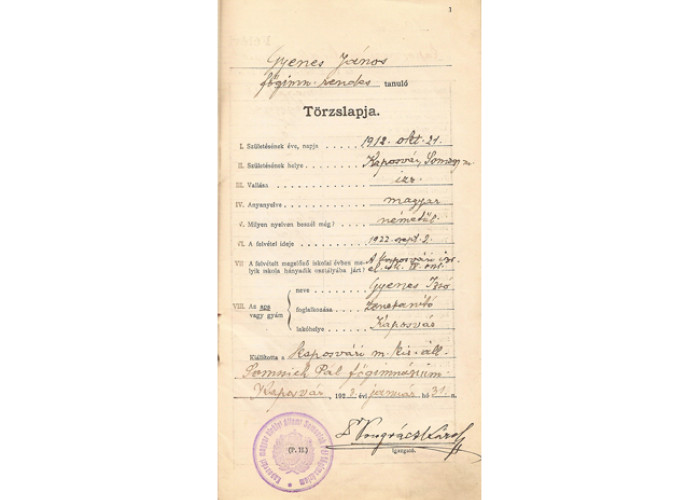 1
Gyenes János
főgimn. rendes tanuló
Törzslapja.
I. Születésének éve, napja 1912. okt. 21.
II. Születésének helye Kaposvár, Somogy m
III. Vallása izr.
IV. Anyanyelve magyar
V. Milyen nyelven beszél még? németül
VI. A felvétel ideje 1922. szept. 2.
VII. A felvételt megelőző iskolai évben me- A kaposvári izr.
lyik iskola hányadik osztályába járt? el. isk. IV. oszt.
VIII. Az apa vagy gyám
neve Gyenes Izsó
foglalkozása zenetanító
lakóhelye Kaposvár
Kiállította a kaposvári m. kir. áll.
Somssich Pál főgimnázium
Kaposvár, 1923 évi január hó 31. n.
(P. H.)
Dr Pongrácz
igazgató.